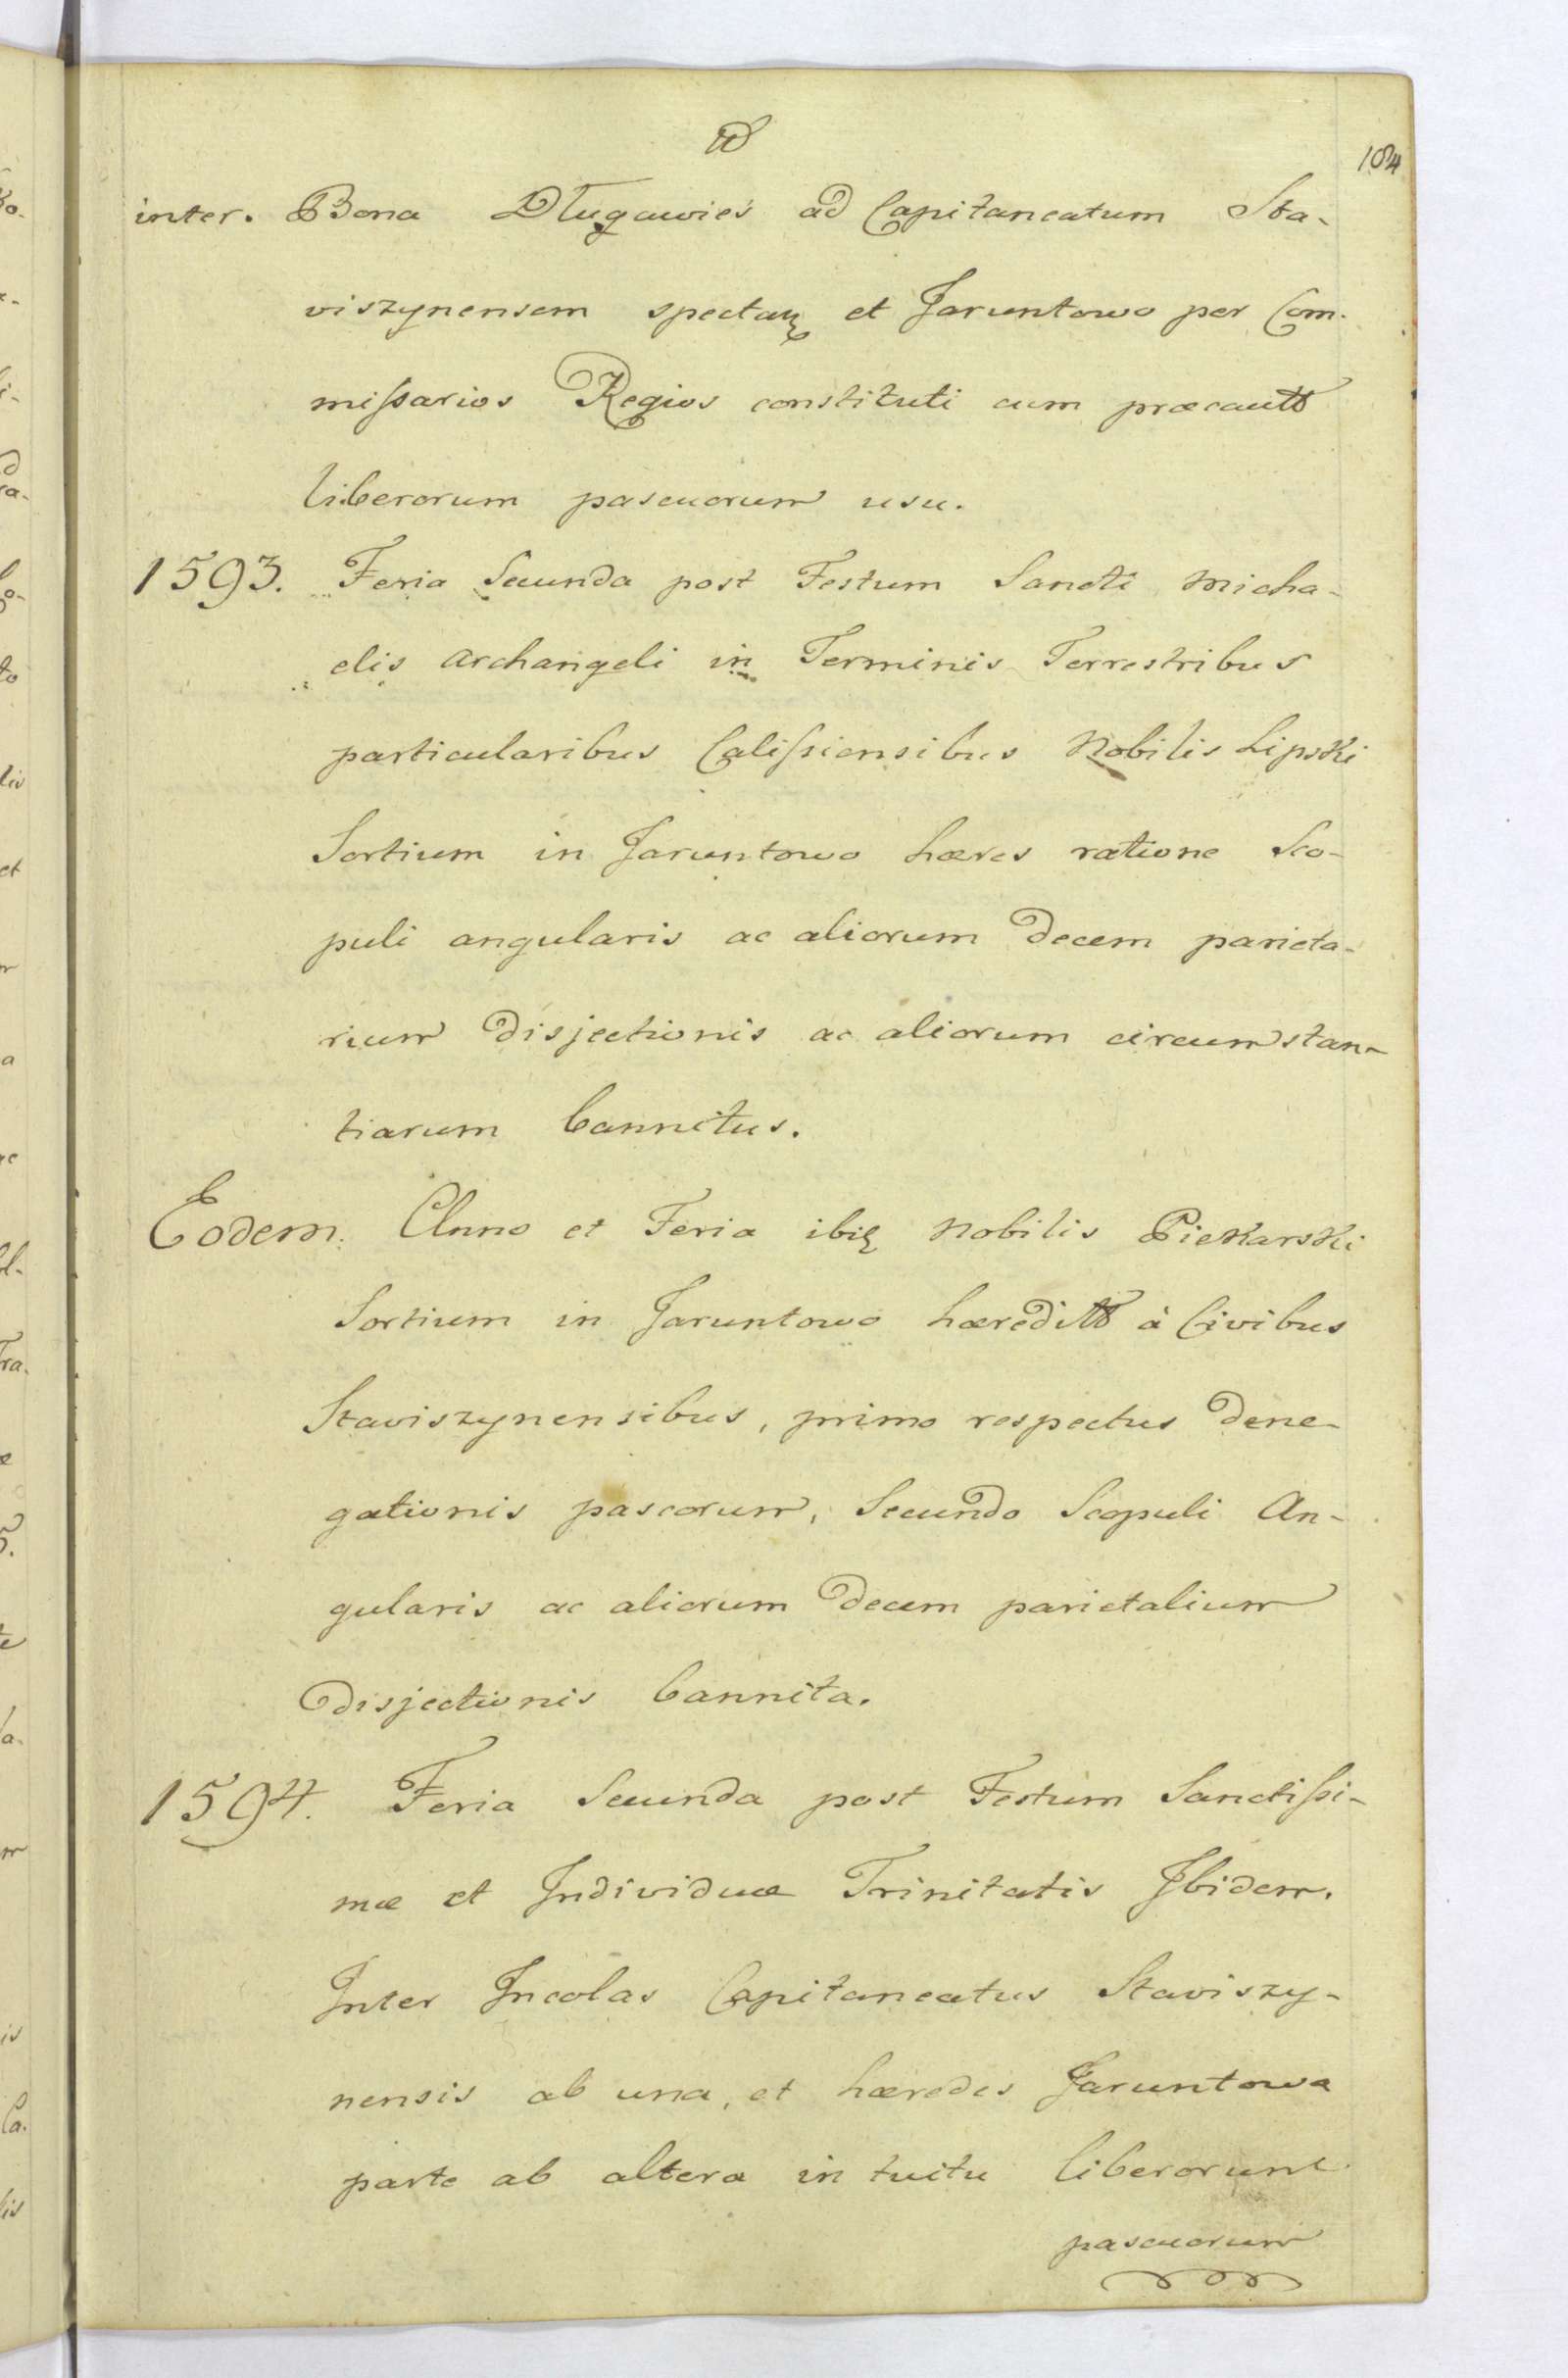 104
inter. Bona Długawieś ad Capitaneatum Sta-
viszynensem spectan et Jaruntowo per Com-
mißarios Regios constituti cum præcautt
liberorum pascuorum usu.
1593. Feria Secunda post Festum Sancti Micha-
elis Archangeli in Terminis Terrestribus
particularibus Calißiensibus Nobilis Lipski
Sortium in Jaruntowo hæres ratione Sco-
puli angularis ac aliorum Decem parieta-
rium Disjectionis ac aliorum circumstan-
tiarum bannitus.
Eodem. Anno et Feria ibiq Nobilis Piekarski
Sortium in Jaruntowo hæreditt à Civibus
Staviszynensibus, primo respectus Dene-
gationis pascorum, Secundo Scopuli An-
gularis ac aliorum Decem parietalium
Disjectionis bannita.
1594. Feria Secunda post Festum Sanctißi-
mæ et Individuæ Trinitatis Ibidem.
Inter Incolas Capitaneatus Staviszy-
nensis ab una, et hæredes Jaruntowa
parte ab altera in tuitu liberorum
pascuorum